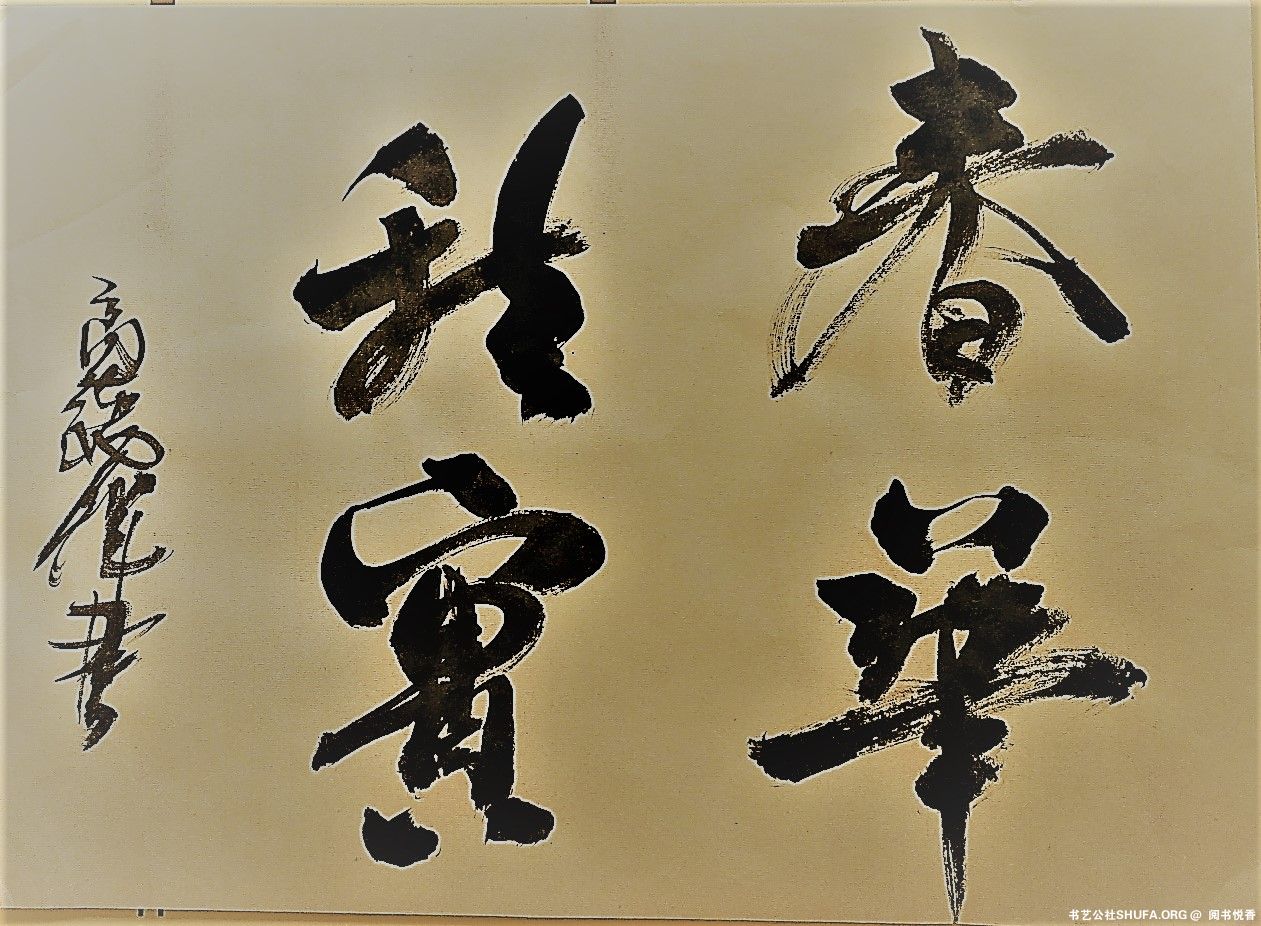 春華
秋實
书艺公社SHUFA.ORG @ 阅书悦香